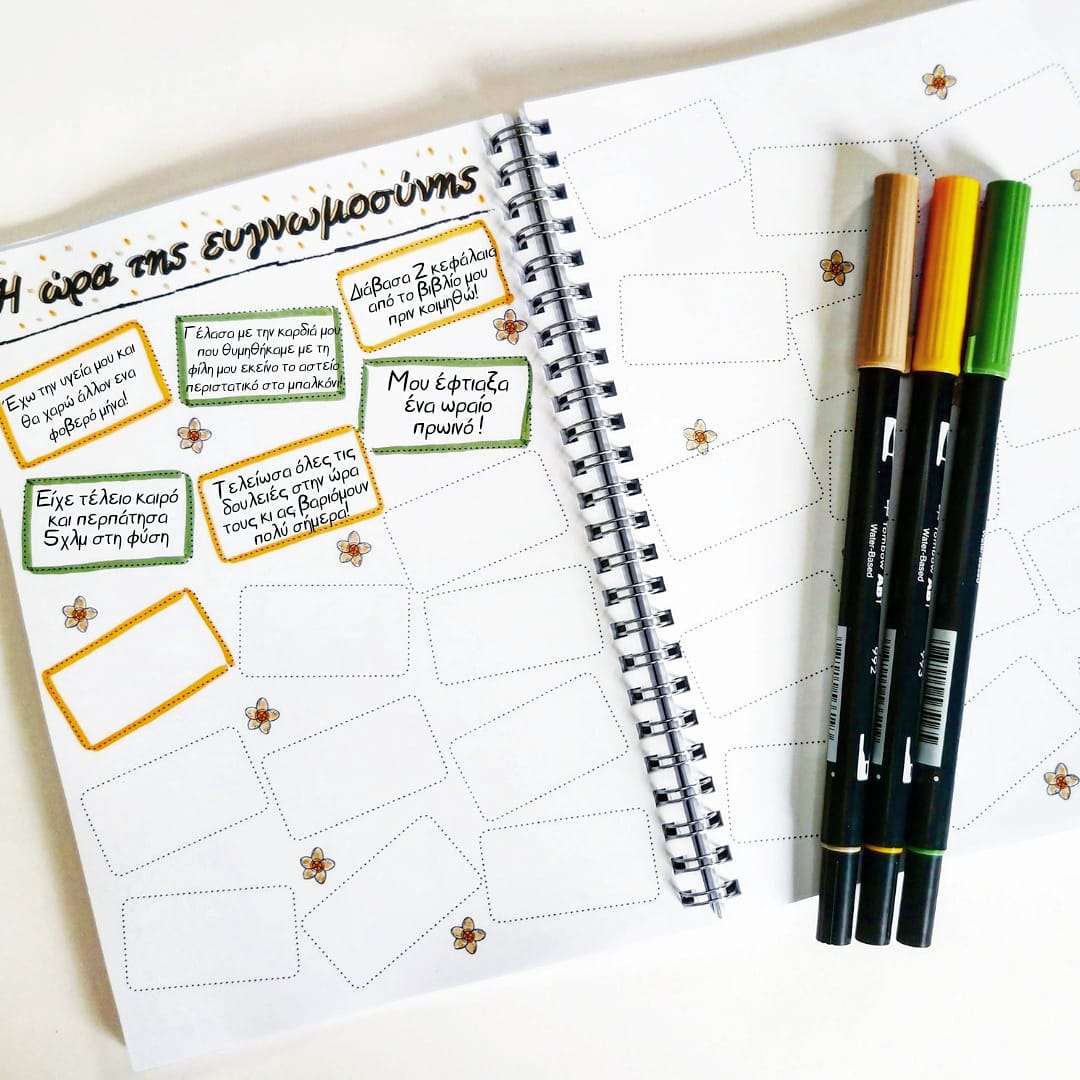 Η ώρα της ευγνωμοσύνης
Έχω την υγεία μου και
θα χαρώ άλλον ενα
φοβερό μήνα!
Γέλασα με την καρδιά μου
που θυμηθήκαμε με τη
φίλη μου εκείνο το αστείο
περιστατικό στο μπαλκόνι!
Διάβασα 2 κεφάλαια
από το βιβλίο μου
πριν κοιμηθώ!
Μου έφτιαξα
ένα ωραίο
πρωινό !
Είχε τέλειο καιρό
και περπάτησα
5χλμ στη φύση
Τελείωσα όλες τις
δουλειές στην ώρα
τους κι ας βαριόμουν
πολύ σήμερα!
Tombow ABT
Water-Based
992
Water-Based
993